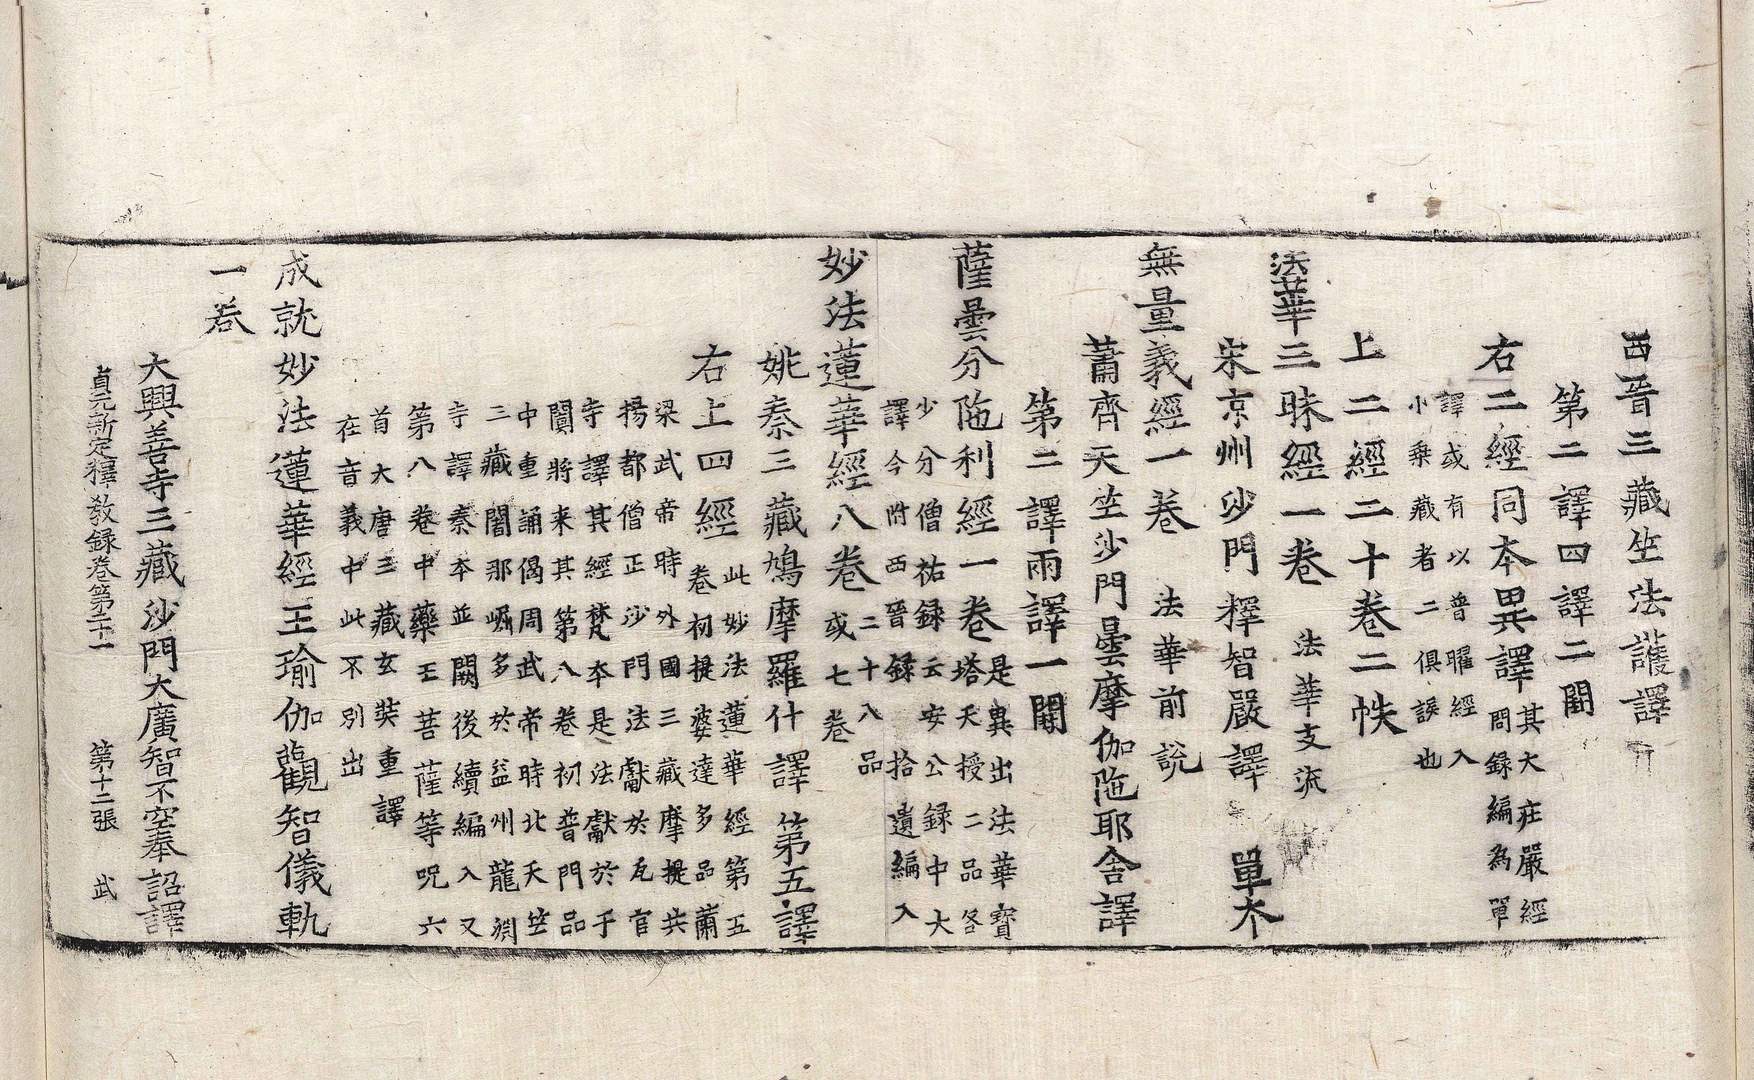 西晉三藏竺法護譯
第二譯四譯二闕
右二經同本異譯 其大莊嚴經
問錄編為單
譯或有以普曜經入
小乗藏者二俱誤也
上二經二十卷二帙
法華三昧經一卷 法華支流
宋京州沙門釋智嚴譯 單本
無量義經一卷 法華前説
蕭齊天竺沙門曇摩伽陁耶舍譯
第二譯兩譯一闕
薩曇分陁利經一卷 是異出法華寶
塔天授二品各
少分僧祐録云安公録中大
譯今附西晉録拾遺編入
妙法蓮華經八卷 二十八品
或七卷
姚秦三藏鳩摩羅什譯 第五譯
右上四經 此妙法蓮華經第五
卷初提婆達多品蕭
梁武帝時外國三藏摩提共
揚都僧正沙門法獻於瓦官
寺譯其經梵本是法獻於于
闐將来其第八卷初普門品
中重誦偈周武帝時北天竺
三藏闍那崛多於益州龍淵
寺譯秦本並闕後續編入又
第八卷中藥王菩薩等呪六
首大唐三藏玄奘重譯
在音義中此不別出
成就妙法蓮華經王瑜伽觀智儀軌
一卷
大興善寺三藏沙門大廣智不空奉 詔譯
貞元新定釋教録卷第二十一 第十二張 武